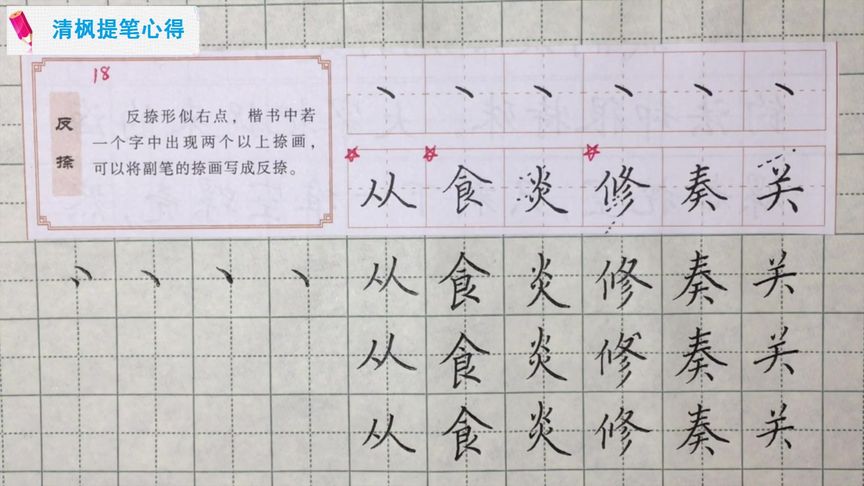 清枫提笔心得
18
反捺
反捺形似右点，楷书中若
一个字中出现两个以上捺画，
可以将副笔的捺画写成反捺。
从食炎修奏关
从食炎修奏关
从食炎修奏关
从食炎修奏关